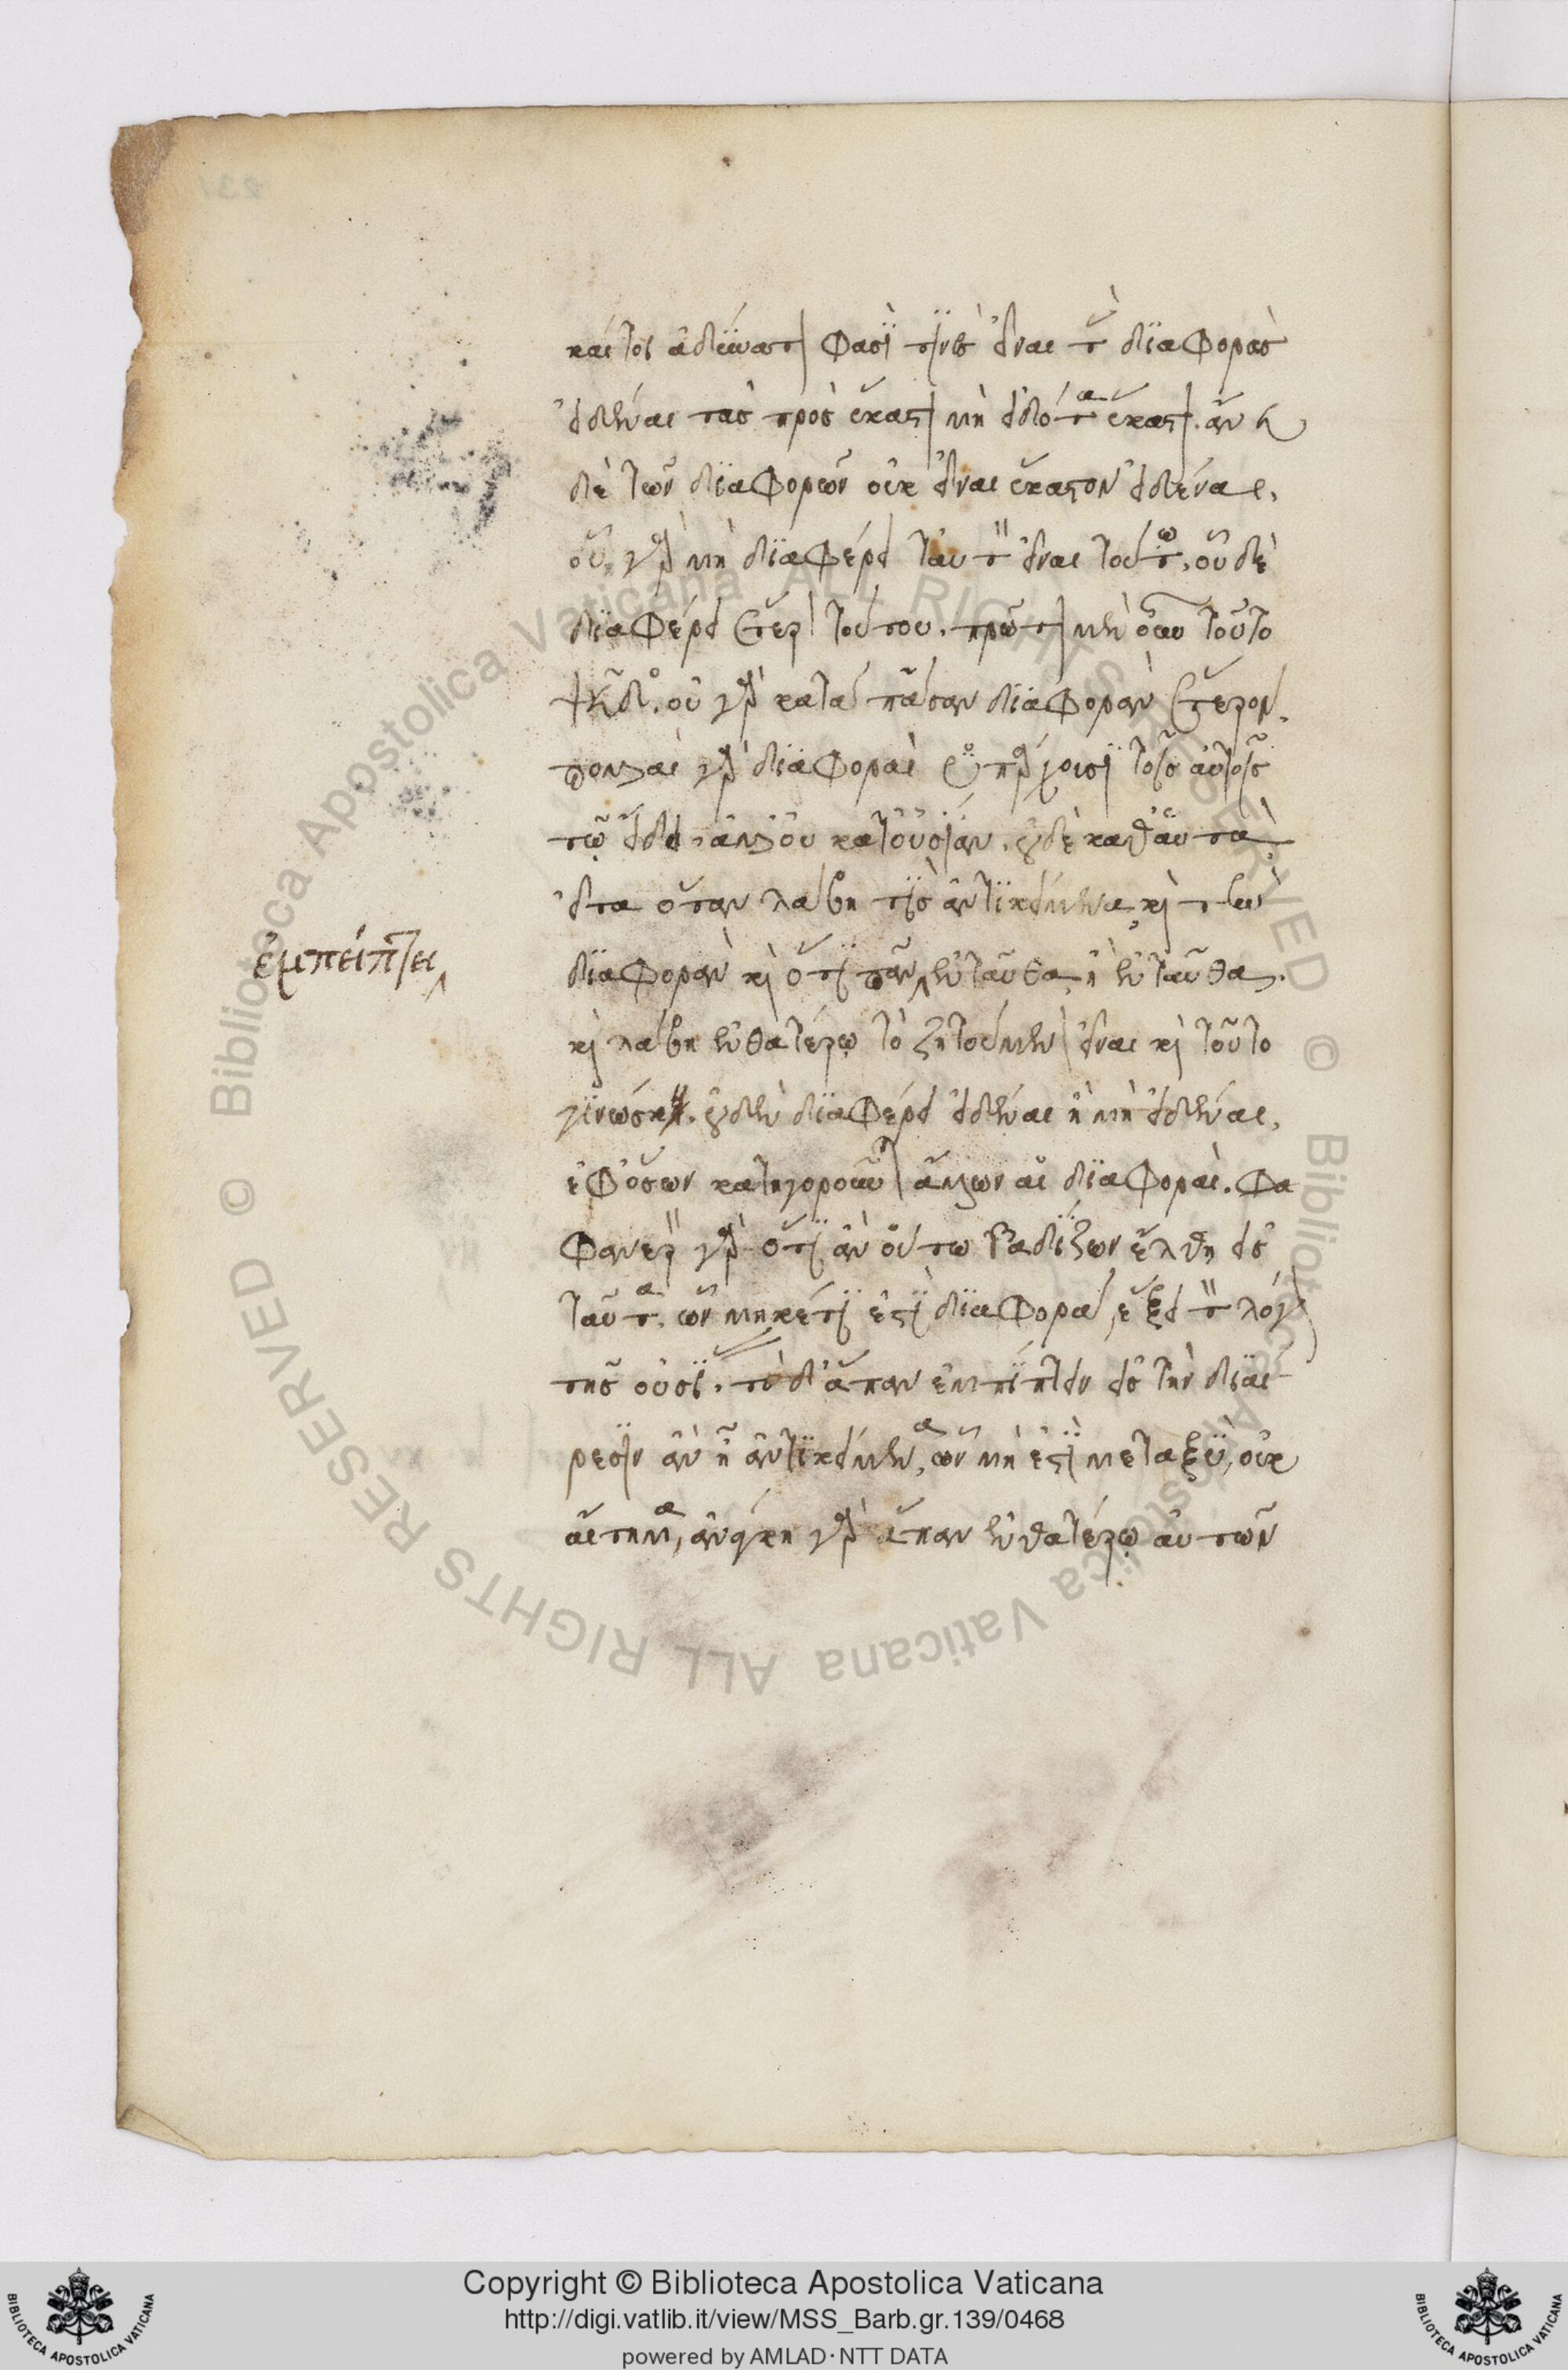 καίτοι ἀδύνατόν φασί τινες εἶναι τὰς διαφορὰς
εἰδέναι τὰς πρὸς ἕκαστον μὴ εἰδότα ἕκαστον. ἄνευ
δὲ τῶν διαφορῶν οὐκ εἶναι ἕκαστον εἰδέναι.
οὗ γὰρ μὴ διαφέρει ταυτὸν εἶναι τούτω. οὗ δὲ
διαφέρει ἕτερον τούτου. πρῶτον μὲν οὖν τοῦτο
ψεῦδος. οὐ γὰρ κατὰ πᾶσαν διαφορὰν ἕτερον.
πολλαὶ γὰρ διαφοραὶ ὑπάρχουσι τοῖς αὐτοῖς
τῷ εἴδει. ἀλλ' οὐ κατ' οὐσίαν. οὐδὲ καθ' αὑτὰ
εἶτα ὅταν λάβη τἰς ἀντικείμενα καὶ τὴν
διαφορὰν καὶ ὅτι πᾶν ἐνταῦθα ἢ ἐνταῦθα.
ἐμπείπτει
καὶ λάβη ἐν θατέρῳ τὸ ζητούμενον εἶναι καὶ τοῦτο
γινώσκη. οὐδὲν διαφέρει εἰδέναι ἢ μὴ εἰδέναι,
ἐφ' ὅσων κατηγοροῦνται ἄλλων αἱ διαφοραί. φα
φανερὸν γὰρ ὅτι ἂν οὕτω βαδίζων ἔλθη εἰς
ταῦτα, ὧν μηκέτι ἐστὶ διαφορά, ἕξει τὸν λόγον
τῆς οὐσίας. τὸ δ' ἅπαν ἐμπίπτειν εἰς τὴν διαί-
ρεσιν ἂν ἦ ἀντικείμενα, ὧν μὴ ἐστὶ μεταξὺ, οὐκ
αἴτημα, ἀνάγκη γὰρ ἅπαν ἐν θατέρῳ αὐτῶν
Copyright © Biblioteca Apostolica Vaticana
http://digi.vatlib.it/view/MSS_Barb.gr.139/0468
powered by AMLAD · NTT DATA